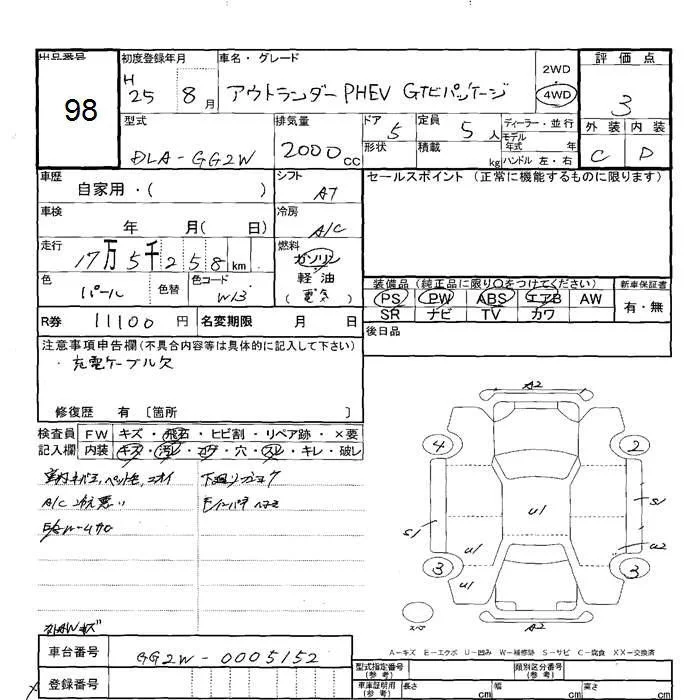 出品番号
98
初度登録年月
H
25 8 月
車名・グレード
アウトランダーPHEV Gナビパッケージ
2WD
4WD
評価点
3
外装 内装
C D
型式
DLA-GG2W
排気量
2000 cc
ドア
5
形状
定員
5 人
積載
kg
ディーラー・並行
モデル
年式 年
ハンドル 左・右
車歴
自家用・( )
シフト
AT
車検
年 月( 日)
冷房
A/C
走行
17万5千258km
燃料
ガソリン
軽油
(電気)
色
パール
色替
色コード
W13
R券 11100 円
名変期限 月 日
セールスポイント(正常に機能するものに限ります)
装備品(純正品に限り○をつけてください)
新車保証書
PS PW ABS エアB AW
有・無
SR ナビ TV カワ
後日品
注意事項申告欄(不具合内容等は具体的に記入して下さい)
・充電ケーブル欠
修復歴 有〔箇所 〕
検査員
記入欄
FW キズ・飛石・ヒビ割・リペア跡・×要
内装 キズ・汚レ・コゲ・穴・スレ・キレ・破レ
A/C
下回り
A2
4 2
S1
U1
S1
U1
U2
3 3
U1
A2
スペア
A-キズ E-エクボ U-凹み W-補修跡 S-サビ C-腐食 XX-交換済
車台番号
GG2W-0005152
登録番号
型式指定番号
(参考)
類別区分番号
(参考)
車庫証明用
(参考)
長さ cm 幅 cm 高さ cm